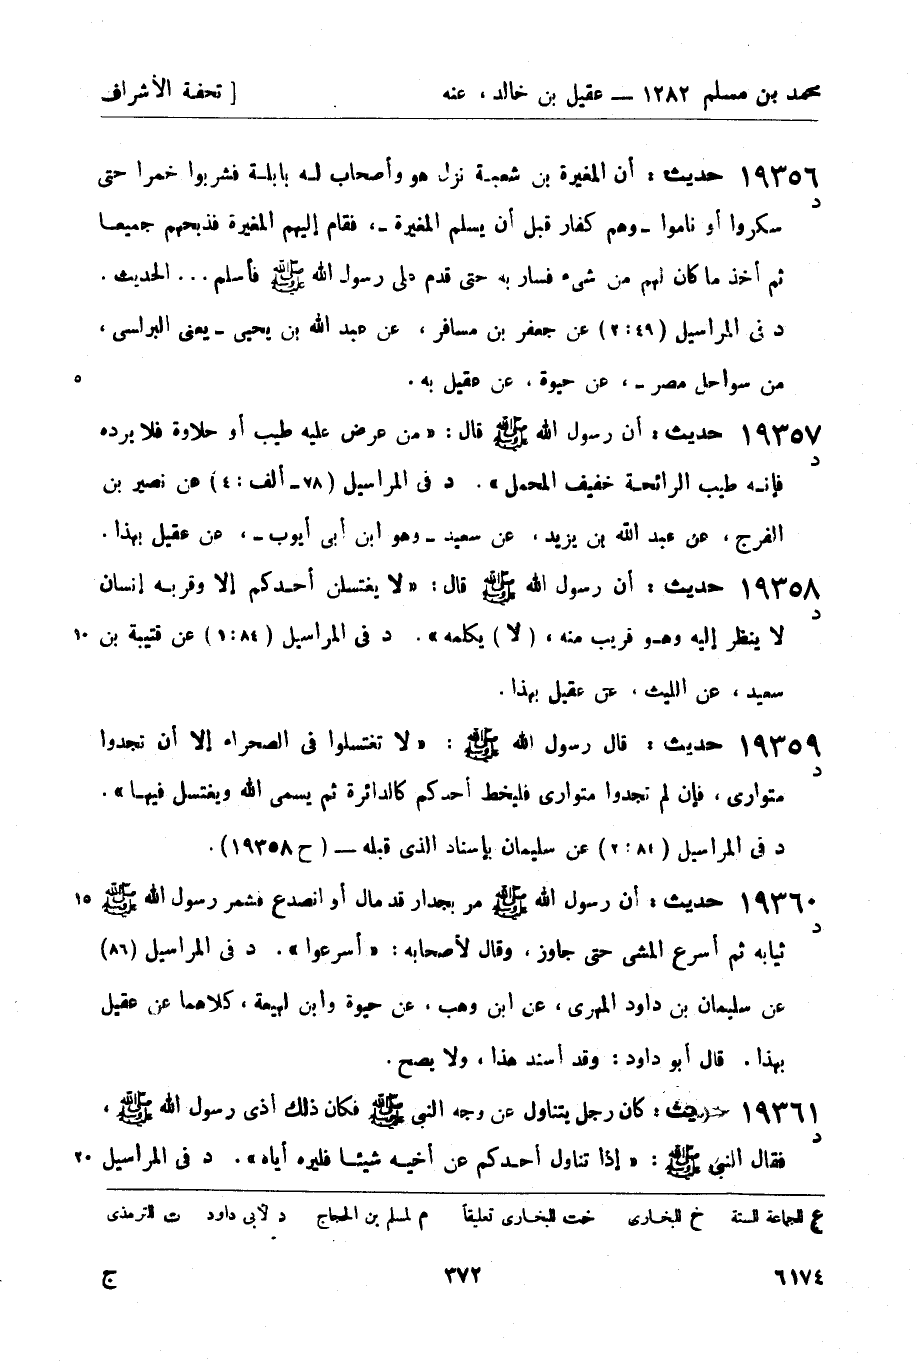 محمد بن مسلم ١٢٨٢ — عقيل بن خالد ، عنه [ تحفة الأشراف
١٩٣٥٦ حديث : أن المغيرة بن شعبة نزل هو وأصحاب له بابلة فشربوا خمرا حتى
د
سكروا أو ناموا ــ وهم كفار قبل أن يسلم المغيرة ــ ، فقام إليهم المغيرة فذبحهم جميعا
ثم أخذ ما كان لهم من شىء فسار به حتى قدم على رسول الله ﷺ فأسلم ... الحديث .
د فى المراسيل (٤٩ : ٢) عن جعفر بن مسافر ، عن عبد الله بن يحيى ــ يعنى البرلسى ،
من سواحل مصر ــ ، عن حيوة ، عن عقيل به . ٥
١٩٣٥٧ حديث : أن رسول الله ﷺ قال : « من عرض عليه طيب أو حلاوة فلا يرده
د
فإنه طيب الرائحة خفيف المحمل » . د فى المراسيل (٧٨ ــ ألف : ٤) عن نصير بن
الفرج ، عن عبد الله بن يزيد ، عن سعيد ــ وهو ابن أبى أيوب ــ ، عن عقيل بهذا .
١٩٣٥٨ حديث : أن رسول الله ﷺ قال : « لا يغتسلن أحدكم إلا وقربه إنسان
د
لا ينظر إليه وهو قريب منه ، ( لا ) يكلمه » . د فى المراسيل (٨٤ : ١) عن قتيبة بن ١٠
سعيد ، عن الليث ، عن عقيل بهذا .
١٩٣٥٩ حديث : قال رسول الله ﷺ : « لا تغتسلوا فى الصحراء إلا أن تجدوا
د
متوارى ، فإن لم تجدوا متوارى فليخط أحدكم كالدائرة ثم يسمى الله ويغتسل فيها » .
د فى المراسيل (٨٤ : ٢) عن سليمان بإسناد الذى قبله — ( ح ١٩٣٥٨) .
١٩٣٦٠ حديث : أن رسول الله ﷺ مر بجدار قد مال أو انصدع فشمر رسول الله ﷺ ١٥
د
ثيابه ثم أسرع المشى حتى جاوز ، وقال لأصحابه : « أسرعوا » . د فى المراسيل (٨٦)
عن سليمان بن داود المهرى ، عن ابن وهب ، عن حيوة وابن لهيعة ، كلاهما عن عقيل
بهذا . قال أبو داود : وقد أسند هذا ، ولا يصح .
١٩٣٦١ حديث : كان رجل يتناول عن وجه النبي ﷺ فكان ذلك أذى رسول الله ﷺ ،
د
فقال النبي ﷺ : « إذا تناول أحدكم عن أخيه شيئا فليره أياه » . د فى المراسيل ٢٠
ع للجماعة الستة خ للبخارى خت للبخارى تعليقاً م لمسلم بن الحجاج د لأبى داود ت للترمذى
٦١٧٤ ٣٧٢ ج